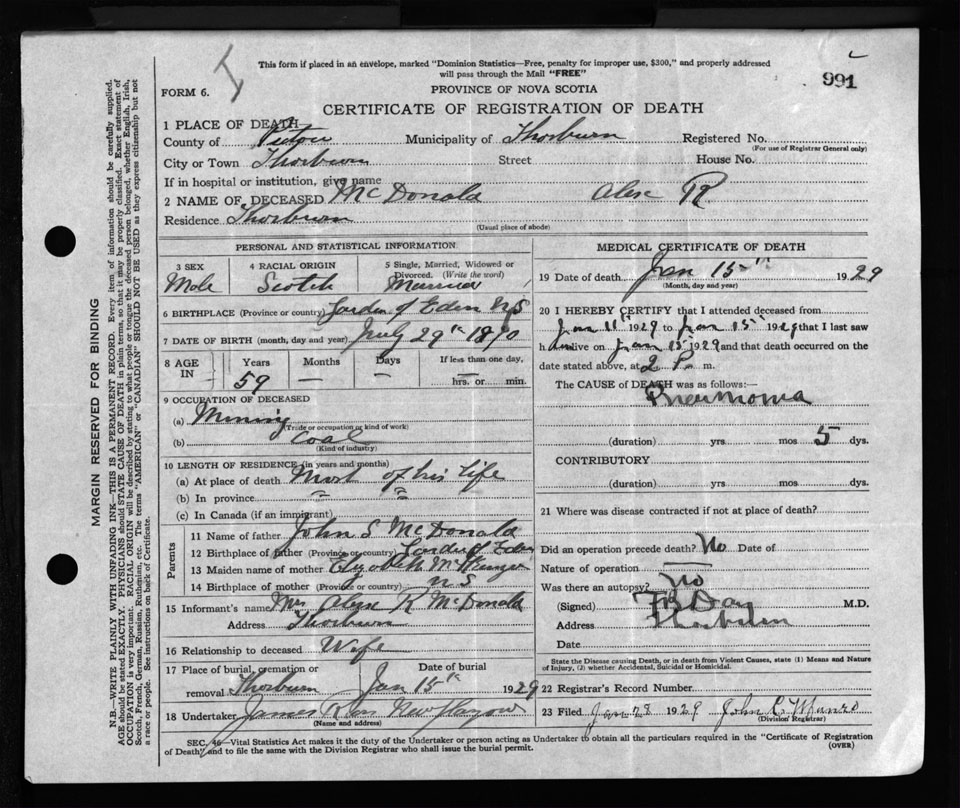 This form if placed in an envelope, marked "Dominion Statistics—Free, penalty for improper use, $300," and properly addressed
will pass through the Mail "FREE"
991
FORM 6.
PROVINCE OF NOVA SCOTIA
CERTIFICATE OF REGISTRATION OF DEATH
1 PLACE OF DEATH
County of Pictou Municipality of Thorburn Registered No.
(For use of Registrar General only)
City or Town Thorburn Street House No.
If in hospital or institution, give name
2 NAME OF DECEASED McDonald Alex R.
Residence Thorburn
(Usual place of abode)
PERSONAL AND STATISTICAL INFORMATION
3 SEX 4 RACIAL ORIGIN 5 Single, Married, Widowed or
Divorced. (Write the word)
Male Scotch Married
6 BIRTHPLACE (Province or country) Garden of Eden N.S
7 DATE OF BIRTH (month, day and year) July 29th 1870
8 AGE IN Years Months Days If less than one day,
59 — — hrs. or min.
9 OCCUPATION OF DECEASED
(a) Mining
(Trade or occupation or kind of work)
(b) Coal
(Kind of industry)
10 LENGTH OF RESIDENCE (in years and months)
(a) At place of death Most of his life
(b) In province " "
(c) In Canada (if an immigrant)
Parents
11 Name of father John S McDonald
12 Birthplace of father (Province or country) Garden of Eden
13 Maiden name of mother Elizabeth
14 Birthplace of mother (Province or country) N S
15 Informant's name Mrs Alex R McDonald
Address Thorburn
16 Relationship to deceased Wife
17 Place of burial, cremation or Date of burial
removal Thorburn Jan 15th 1929
18 Undertaker James Ross New Glasgow
(Name and address)
MEDICAL CERTIFICATE OF DEATH
19 Date of death Jan 15th 1929
(Month, day and year)
20 I HEREBY CERTIFY that I attended deceased from
Jan 11th 1929 to Jan 15th 1929 that I last saw
h im alive on Jan 15th 1929 and that death occurred on the
date stated above, at 2 P. m.
The CAUSE of DEATH was as follows:
Pneumonia
(duration) yrs. mos 5 dys.
CONTRIBUTORY
(duration) yrs. mos. dys.
21 Where was disease contracted if not at place of death?
Did an operation precede death? No Date of
Nature of operation —
Was there an autopsy? No
(Signed) Day M.D.
Address Thorburn
Date
State the Disease causing Death, or in death from Violent Causes, state (1) Means and Nature
of Injury, (2) whether Accidental, Suicidal or Homicidal.
22 Registrar's Record Number
23 Filed Jan 28 1929 John C Munro
(Division Registrar)
SEC. 46—Vital Statistics Act makes it the duty of the Undertaker or person acting as Undertaker to obtain all the particulars required in the "Certificate of Registration
of Death" and to file the same with the Division Registrar who shall issue the burial permit.
(OVER)
MARGIN RESERVED FOR BINDING
N.B.—WRITE PLAINLY WITH UNFADING INK—THIS IS A PERMANENT RECORD. Every item of information should be carefully supplied.
AGE should be stated EXACTLY. PHYSICIANS should STATE CAUSE OF DEATH in plain terms, so that it may be properly classified. Exact statement of
OCCUPATION is very important. RACIAL ORIGIN will be described by stating to what people or tongue the deceased person belonged, whether English, Irish,
Scotch, French, German, Russian, Ruthenian, etc. The terms "AMERICAN" or "CANADIAN" SHOULD NOT BE USED as they express citizenship but not
a race or people. See instructions on back of Certificate.